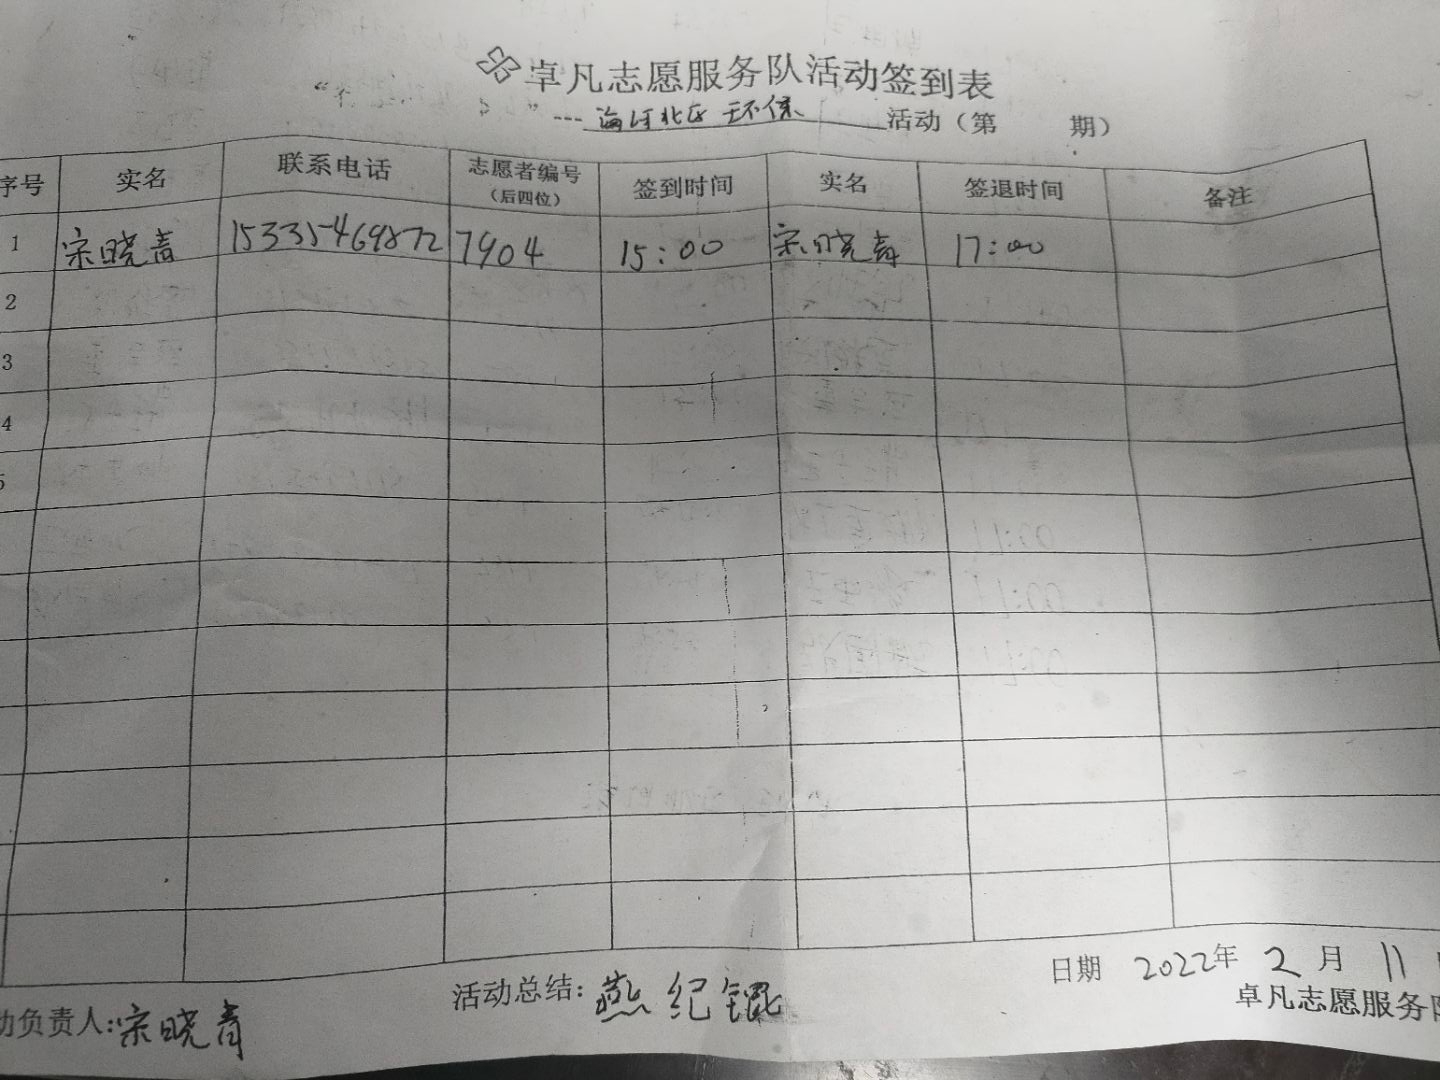 卓凡志愿服务队活动签到表
---海河北区 环保 活动（第 期）
序号 实名 联系电话 志愿者编号（后四位） 签到时间 实名 签退时间 备注
1 宋晓青 15335469872 7904 15:00 宋晓青 17:00
2
3
4
5
动负责人:宋晓青 活动总结: 燕纪锟 日期 2022年 2月 11
卓凡志愿服务队